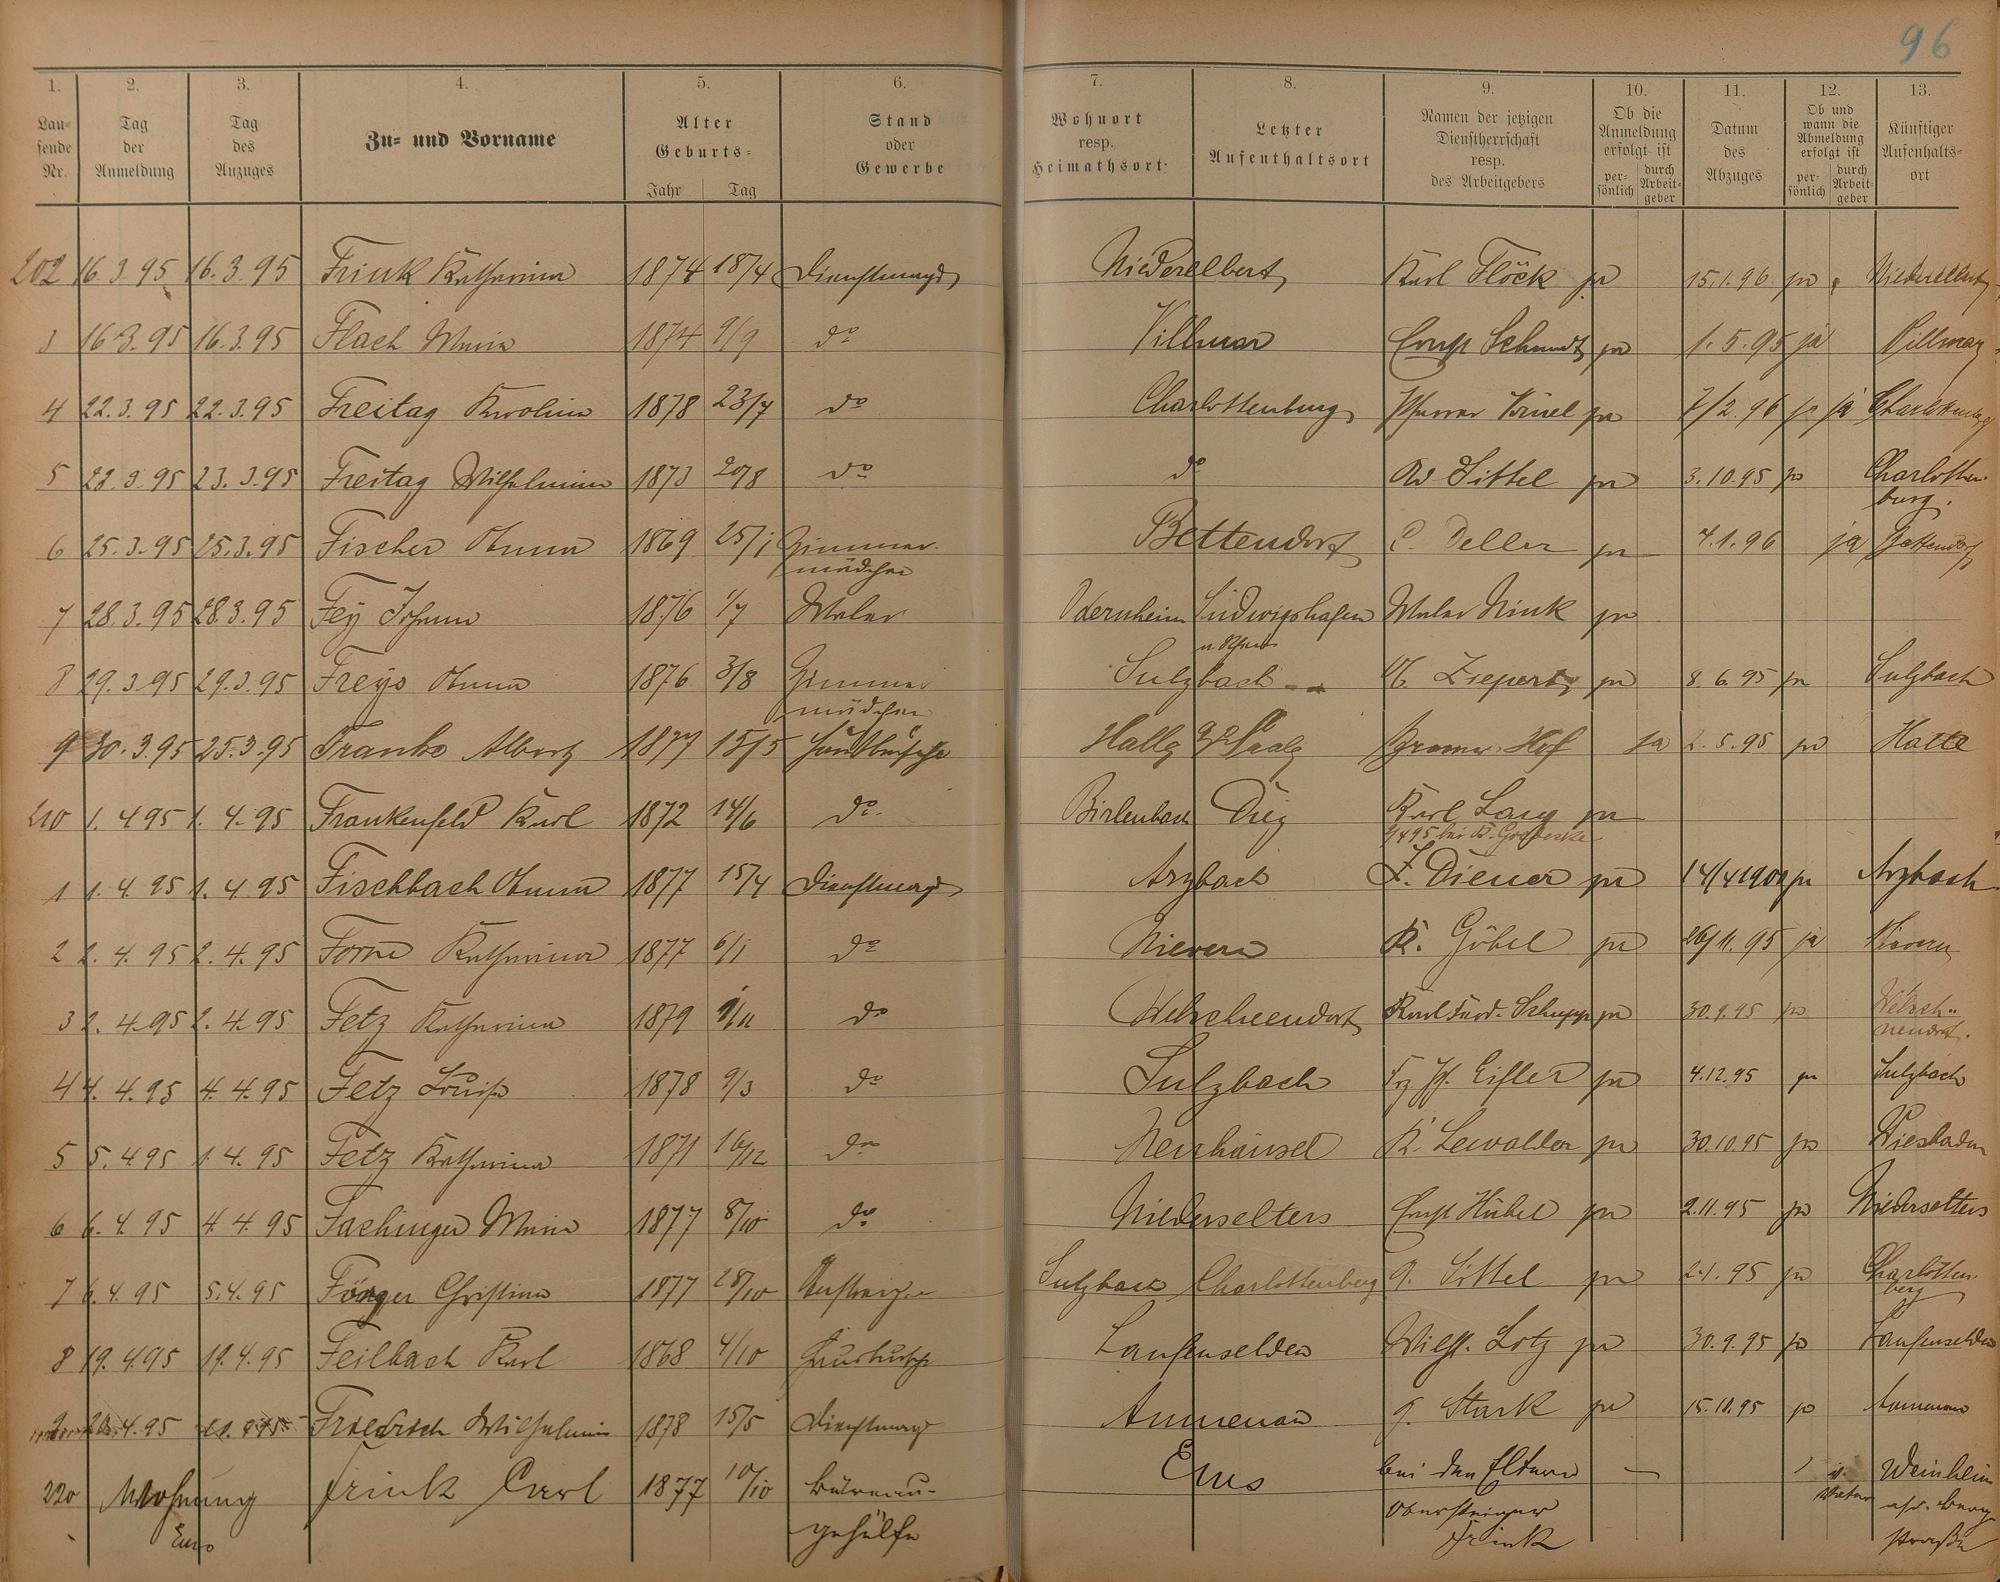 96
1. 2. 3. 4. 5. 6. 7. 8. 9. 10. 11. 12. 13.
Lau-
fende
Nr.
Tag
der
Anmeldung
Tag
des
Anzuges
Zu- und Vorname
Alter
Geburts-
Jahr Tag
Stand
oder
Gewerbe
Wohnort
resp.
Heimathsort
Letzter
Aufenthaltsort
Namen der jetzigen
Dienstherrschaft
resp.
des Arbeitgebers
Ob die
Anmeldung
erfolgt ist
per-
sönlich
durch
Arbeit-
geber
Datum
des
Abzuges
Ob und
wann die
Abmeldung
erfolgt ist
per-
sönlich
durch
Arbeit-
geber
Künftiger
Aufenthalts-
ort
202 16.3.95 16.3.95 Frink Katharina 1874 18/4 Dienstmagd Niederelbert Karl Flöck ja 15.1.96 ja Niederelbert
3 16.3.95 16.3.95 Flach Maria 1874 9/9 do Villmar Ernst Schmidt ja 1.5.95 ja Villmar
4 22.3.95 22.3.95 Freitag Karolina 1878 23/7 do Charlottenburg Pfarrer ja 7/2.96 ja ja Charlottenburg
5 23.3.95 23.3.95 Freitag Wilhelmina 1873 20/8 do do Sittel ja 3.10.95 ja Charlotten-
burg.
6 25.3.95 25.3.95 Fischer Anna 1869 25/1 Zimmer- Bettendorf C. Deller ja 4.1.96 ja Bettendorf
mädchen
7 28.3.95 28.3.95 Fey Johann 1876 1/7 Maler Odernheim Ludwigshafen Maler Nink ja
a. Rhein
8 29.3.95 29.3.95 Freys Anna 1876 3/8 Zimmer Sulzbach Ziepertz ja 8.6.95 ja Sulzbach
mädchen
9 30.3.95 25.3.95 Franke Albert 1877 15/5 Hausbursche Halle a/Saale Hof ja 2.5.95 ja Halle
210 1.4.95 1.4.95 Frankenfeld Karl 1872 14/6 do Birlenbach Diez Karl Lang ja
1 1.4.95 1.4.95 Fischbach Anna 1877 15/4 Dienstmagd Arzbach F. Diener ja 14/4 1900 ja Arzbach
2 2.4.95 2.4.95 Katharina 1877 6/1 do Nievern K. Göbel ja 26/11.95 ja Nievern
3 2.4.95 2.4.95 Fetz Katharina 1879 do Welschneudorf Karl Ferd. Schupp ja 30.9.95 ja Welsch-
neudorf.
4 4.4.95 4.4.95 Fetz Louise 1878 9/3 do Sulzbach Eisler ja 4.12.95 ja Sulzbach
5 5.4.95 1.4.95 Fetz Katharina 1871 16/12 do Neuhäusel K. Lewalder ja 30.10.95 ja Wiesbaden
6 6.4.95 4.4.95 Fachinger Maria 1877 8/10 do Niederselters Ernst Hübel ja 2.11.95 ja Niederselters
7 6.4.95 5.4.95 Christina 1877 28/10 Sulzbach Charlottenberg G. Sittel ja 2.1.95 ja Charlotten-
berg
8 19.4.95 19.4.95 Feilbach Karl 1868 4/10 Hausbursche Laufenselden Wilh. Lotz ja 30.9.95 ja Laufenselden
9 Friedrich Wilhelmine 1878 15/5 Dienstmagd Aumenau G. Stark ja 15.11.95 ja Aumenau
220 Wohnung Frink Carl 1877 10/10 Büreau- Ems bei den Eltern Weinheim
Ems gehülfe Obersteiger
Frink
a/d. Berg
straße